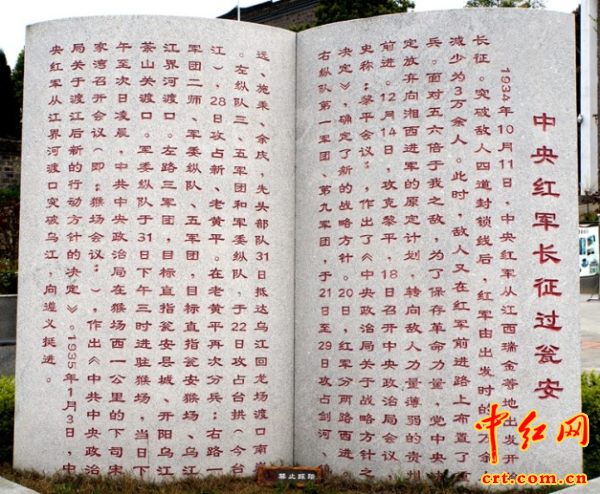 中央红军长征过瓮安
1934年10月11日，中央红军从江西瑞金等地出发开
长征。突破敌人四道封锁线后，红军由出发时的 万余
减少为3万余人。此时，敌人又在红军前进路上布置了
兵。面对五六倍于我之敌，为了保存革命力量，党中央
定放弃向湘西进军的原定计划，转向敌人力量薄弱的贵州
前进。12月14日，攻克黎平，18日召开中央政治局会议，
史称：黎平会议，作出了《中央政治局关于战略方针之
决定》，确定了新的战略方针。20日，红军分两路西进，
右纵队第一军团、第九军团，于21日至29日攻占剑河、镇
远、施秉、余庆，先头部队31日抵达乌江回龙场渡口南岸
。左纵队三、五军团和军委纵队，于22日攻占台拱（今台
江），28日攻占新、老黄平。在老黄平再次分兵：右路一
军团二师、军委纵队、五军团，目标直指瓮安猴场、乌江
江界河渡口。左路三军团，目标直指瓮安县城、开阳乌江
茶山关渡口。军委纵队于31日下午三时进驻猴场，当日下
午至次日凌晨，中共中央政治局在猴场西一公里的下司宋
家湾召开会议（即：猴场会议：），作出《中共中央政治
局关于渡江后新的行动方针的决定》。1935年1月3日，中
央红军从江界河渡口突破乌江，向遵义挺进。
禁止踩踏
中红网
crt.com.cn